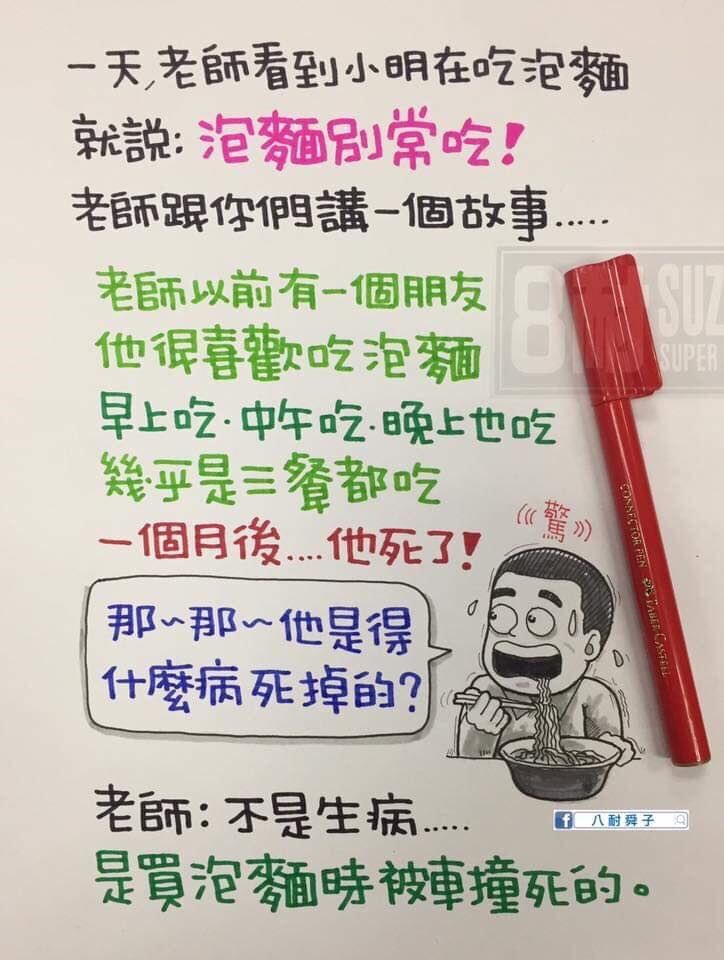 一天,老師看到小明在吃泡麵
就說:泡麵別常吃!
老師跟你們講一個故事.....
8耐 SUZ
SUPER
老師以前有一個朋友
他很喜歡吃泡麵
早上吃.中午吃.晚上也吃
幾乎是三餐都吃
CONNECTOR PEN FABER-CASTELL
一個月後....他死了!
驚
那~那~他是得
什麼病死掉的?
老師:不是生病.....
八耐舜子
是買泡麵時被車撞死的。